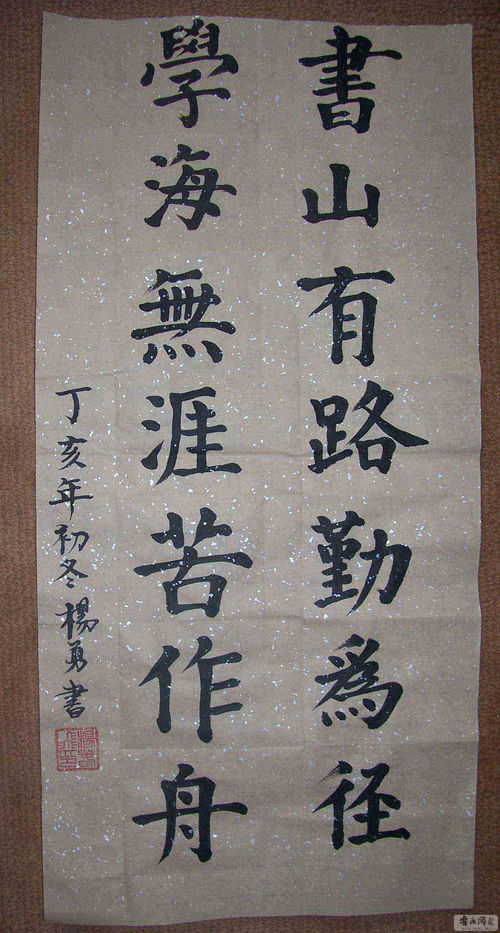 書山有路勤為徑
學海無涯苦作舟
丁亥年初冬楊勇書